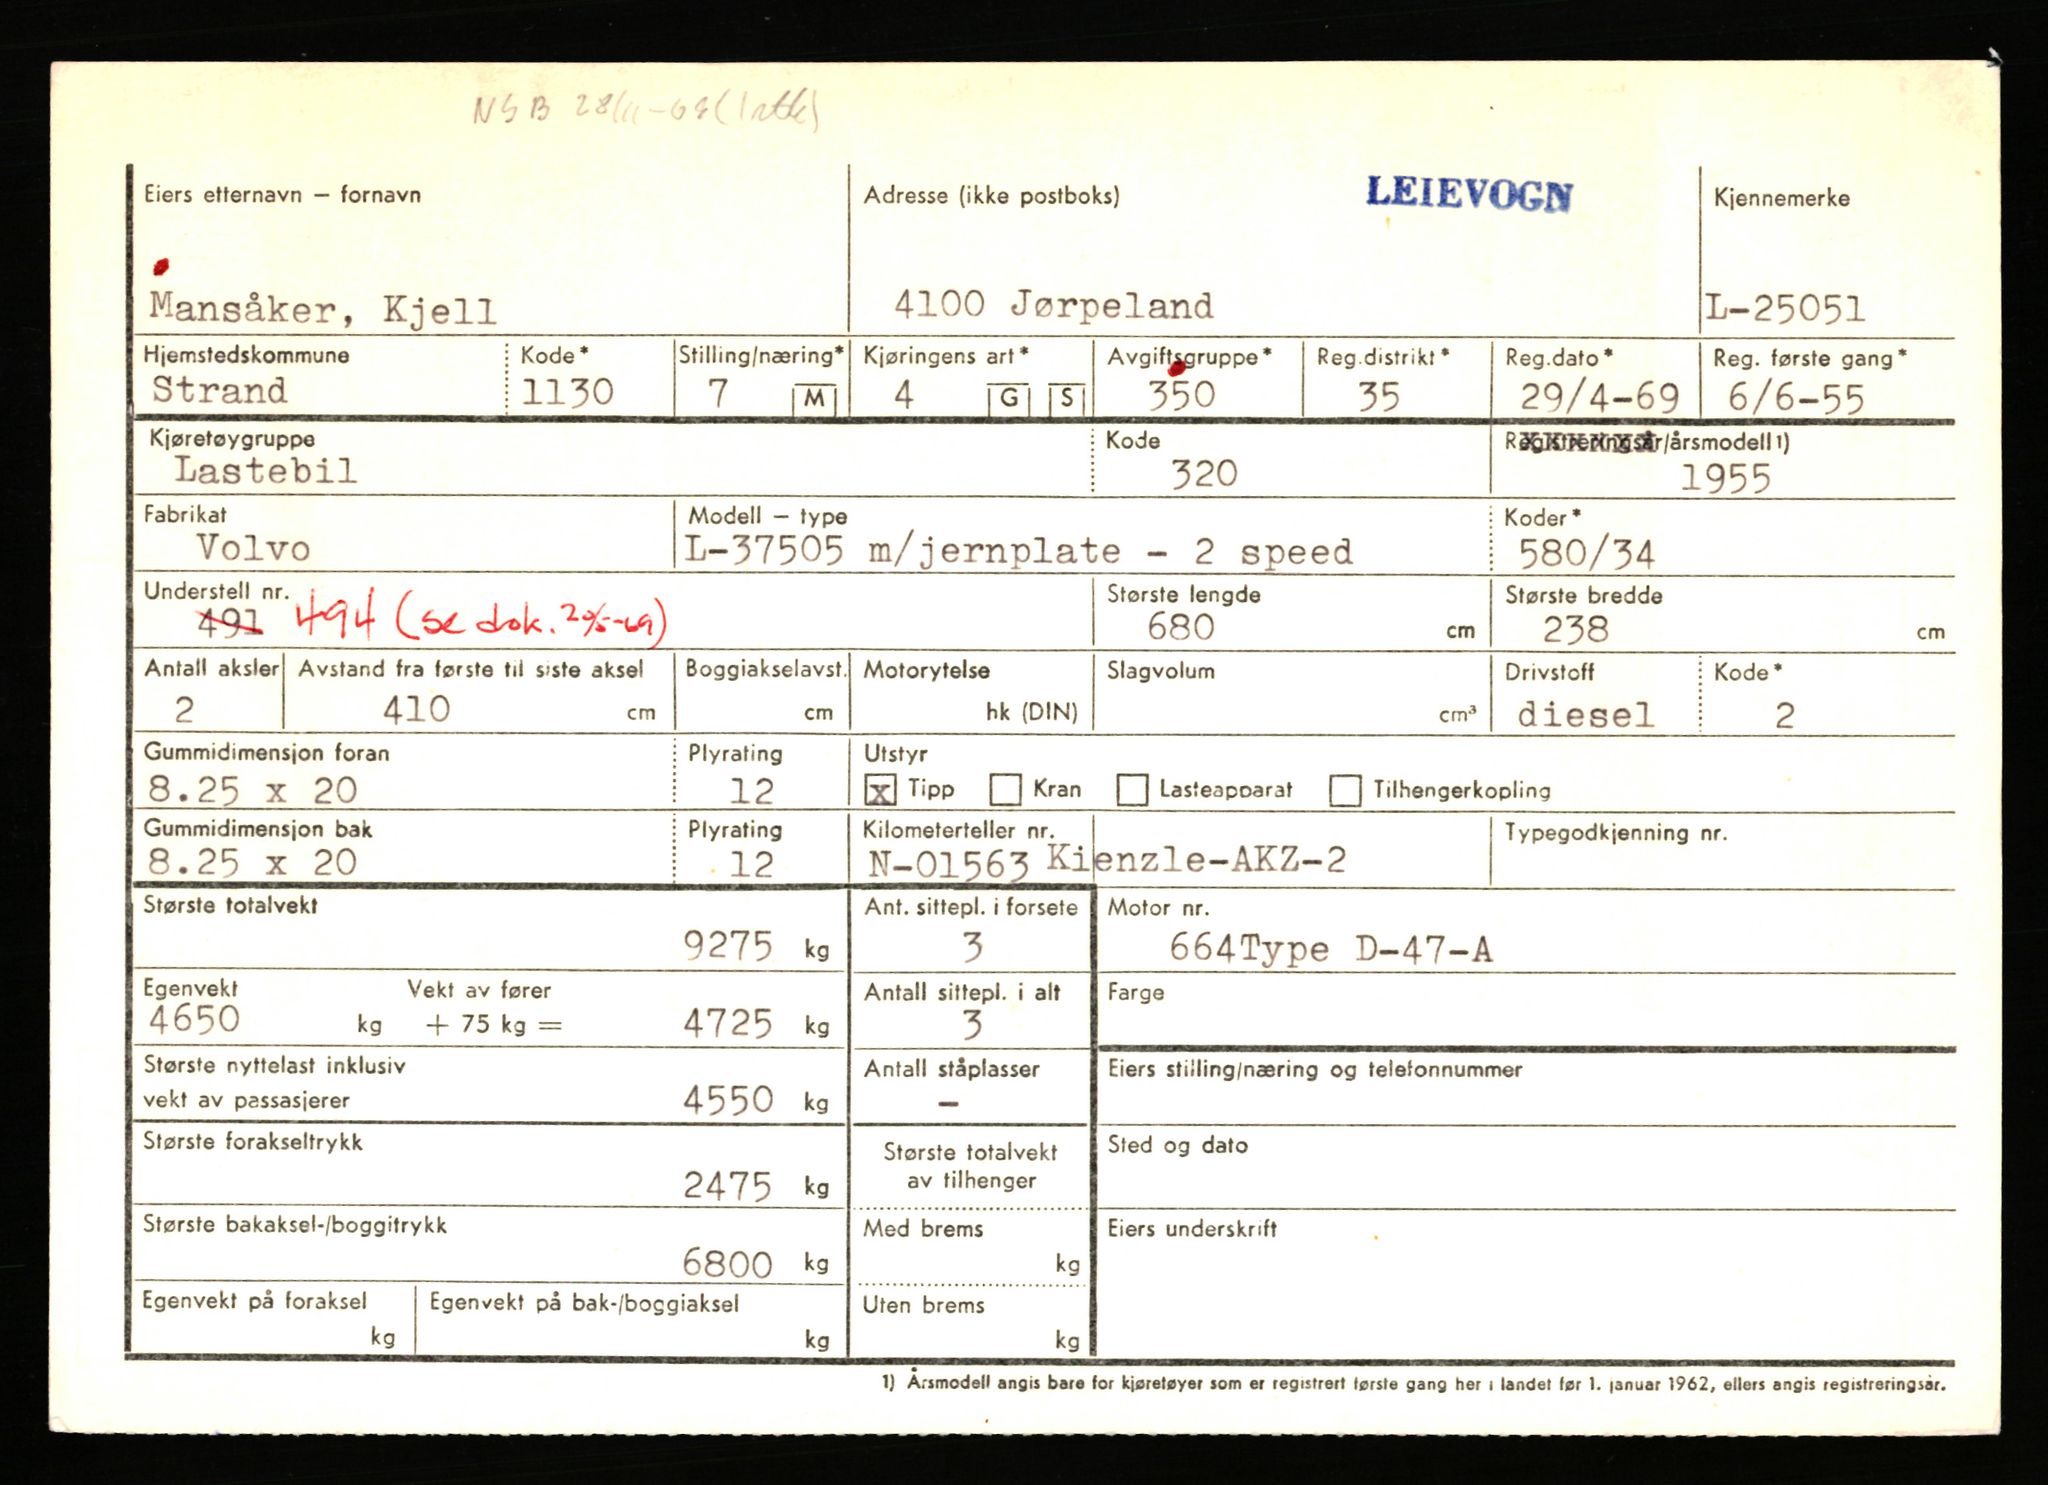 NSB 28/11-68
LEIEVOGN
Eiers etternavn – fornavn
Adresse (ikke postboks)
Kjennemerke
Mansåker, Kjell
4100 Jørpeland
L-25051
Hjemstedskommune Kode* Stilling/næring* Kjøringens art* Avgiftsgruppe* Reg.distrikt* Reg.dato* Reg. første gang*
Strand 1130 7 M 4 G S 350 35 29/4-69 6/6-55
Kjøretøygruppe Kode Registreringsår/årsmodell 1)
Lastebil 320 1955
Fabrikat Modell – type Koder*
Volvo L-37505 m/jernplate - 2 speed 580/34
Understell nr. Største lengde Største bredde
491 494 (se dok. 29/5-69) 680 cm 238 cm
Antall aksler Avstand fra første til siste aksel Boggiakselavst. Motorytelse Slagvolum Drivstoff Kode*
2 410 cm cm hk (DIN) cm³ diesel 2
Gummidimensjon foran Plyrating Utstyr
8.25 x 20 12 x Tipp Kran Lasteapparat Tilhengerkopling
Gummidimensjon bak Plyrating Kilometerteller nr. Typegodkjenning nr.
8.25 x 20 12 N-01563 Kienzle-AKZ-2
Største totalvekt Ant. sittepl. i forsete Motor nr.
9275 kg 3 664Type D-47-A
Egenvekt Vekt av fører Antall sittepl. i alt Farge
4650 kg + 75 kg = 4725 kg 3
Største nyttelast inklusiv Antall ståplasser Eiers stilling/næring og telefonnummer
vekt av passasjerer 4550 kg -
Største forakseltrykk Største totalvekt Sted og dato
av tilhenger
2475 kg
Største bakaksel-/boggitrykk Med brems Eiers underskrift
6800 kg kg
Egenvekt på foraksel Egenvekt på bak-/boggiaksel Uten brems
kg kg kg
1) Årsmodell angis bare for kjøretøyer som er registrert første gang her i landet før 1. januar 1962, ellers angis registreringsår.